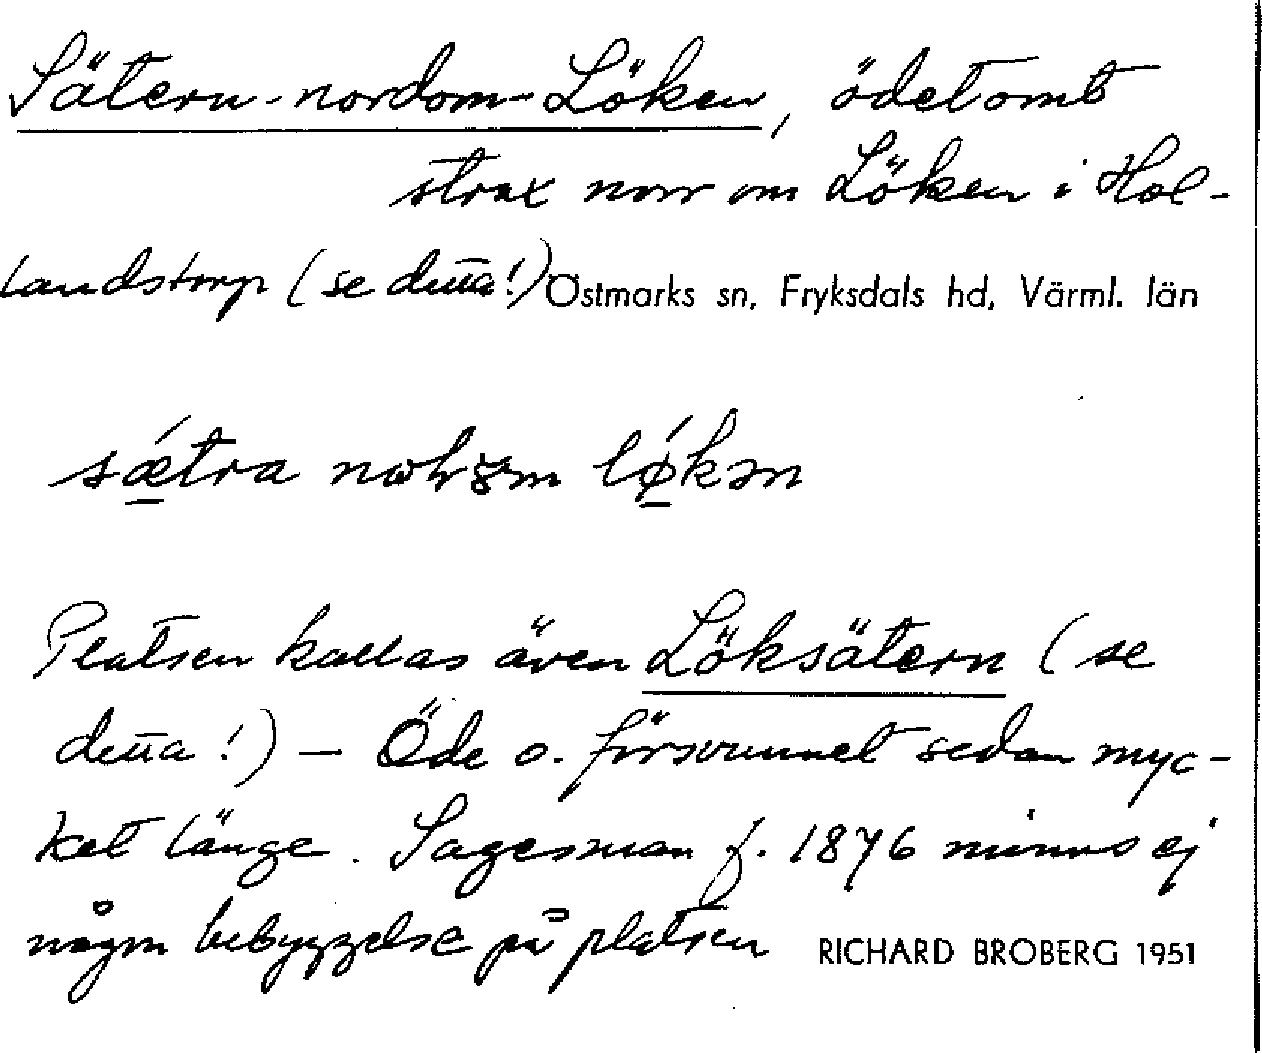 Sätern-nordom-Löken, ödetomt
strax norr om Löken i Hol-
landstorp (se detta!) Östmarks sn, Fryksdals hd, Värml. län
sǽtra nɷhrɷm lǿkən
Platsen kallas även Löksätern (se
detta!) — Öde o. försvunnet sedan myc-
ket länge. Sagesman f. 1876 minns ej
någon bebyggelse på platsen RICHARD BROBERG 1951